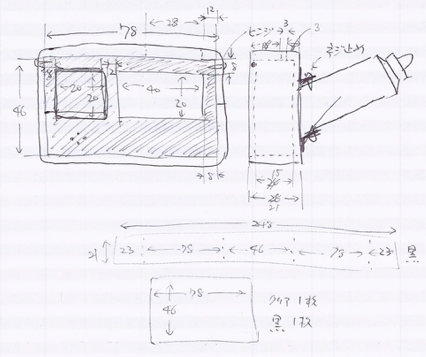 78
28
12
ヒンジ
3
3
ネジ止め
8
8
2
20
20
40
20
46
8
15
21
248
21
23
78
46
78
23
黒
78
46
クリア 1枚
黒 1枚